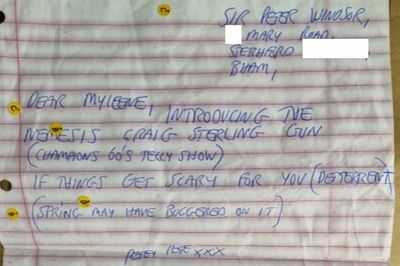 SIR PETER WINDSOR,
MARY ROAD,
STERHERD
BHAM,
DEAR MYLEENE, INTRODUCING THE
NEMESIS CRAIG STERLING GUN
(CHAMPIONS 60'S TELLY SHOW)
IF THINGS GET SCARY FOR YOU (DETERRENT)
(SPRING MAY HAVE BUGGERED ON IT)
PETER PETE XXX